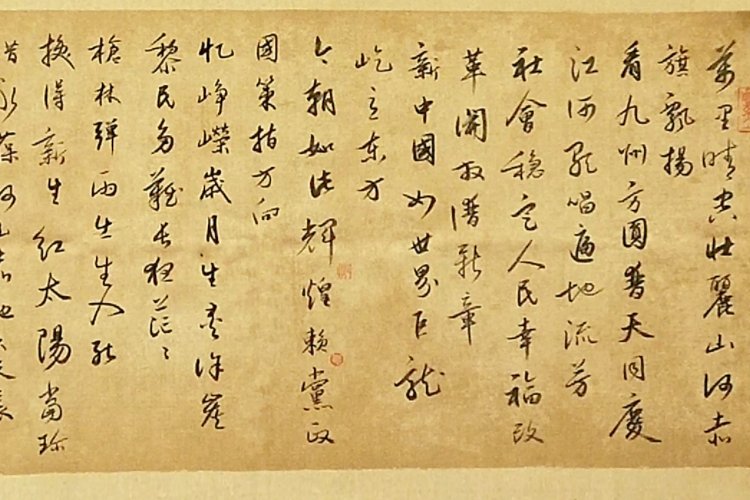 萬里晴空壯麗山河赤
旗飄揚
看九州方圓普天同慶
江河歌唱遍地流芳
社會穩定人民幸福改
革開放譜新章
新中國如世界巨龍
屹立東方
今朝如此輝煌賴黨政
國策指方向
忆崢嶸歲月生靈涂炭
黎民多難長夜茫〻
槍林彈雨出生入死
換得新生紅太陽當珍